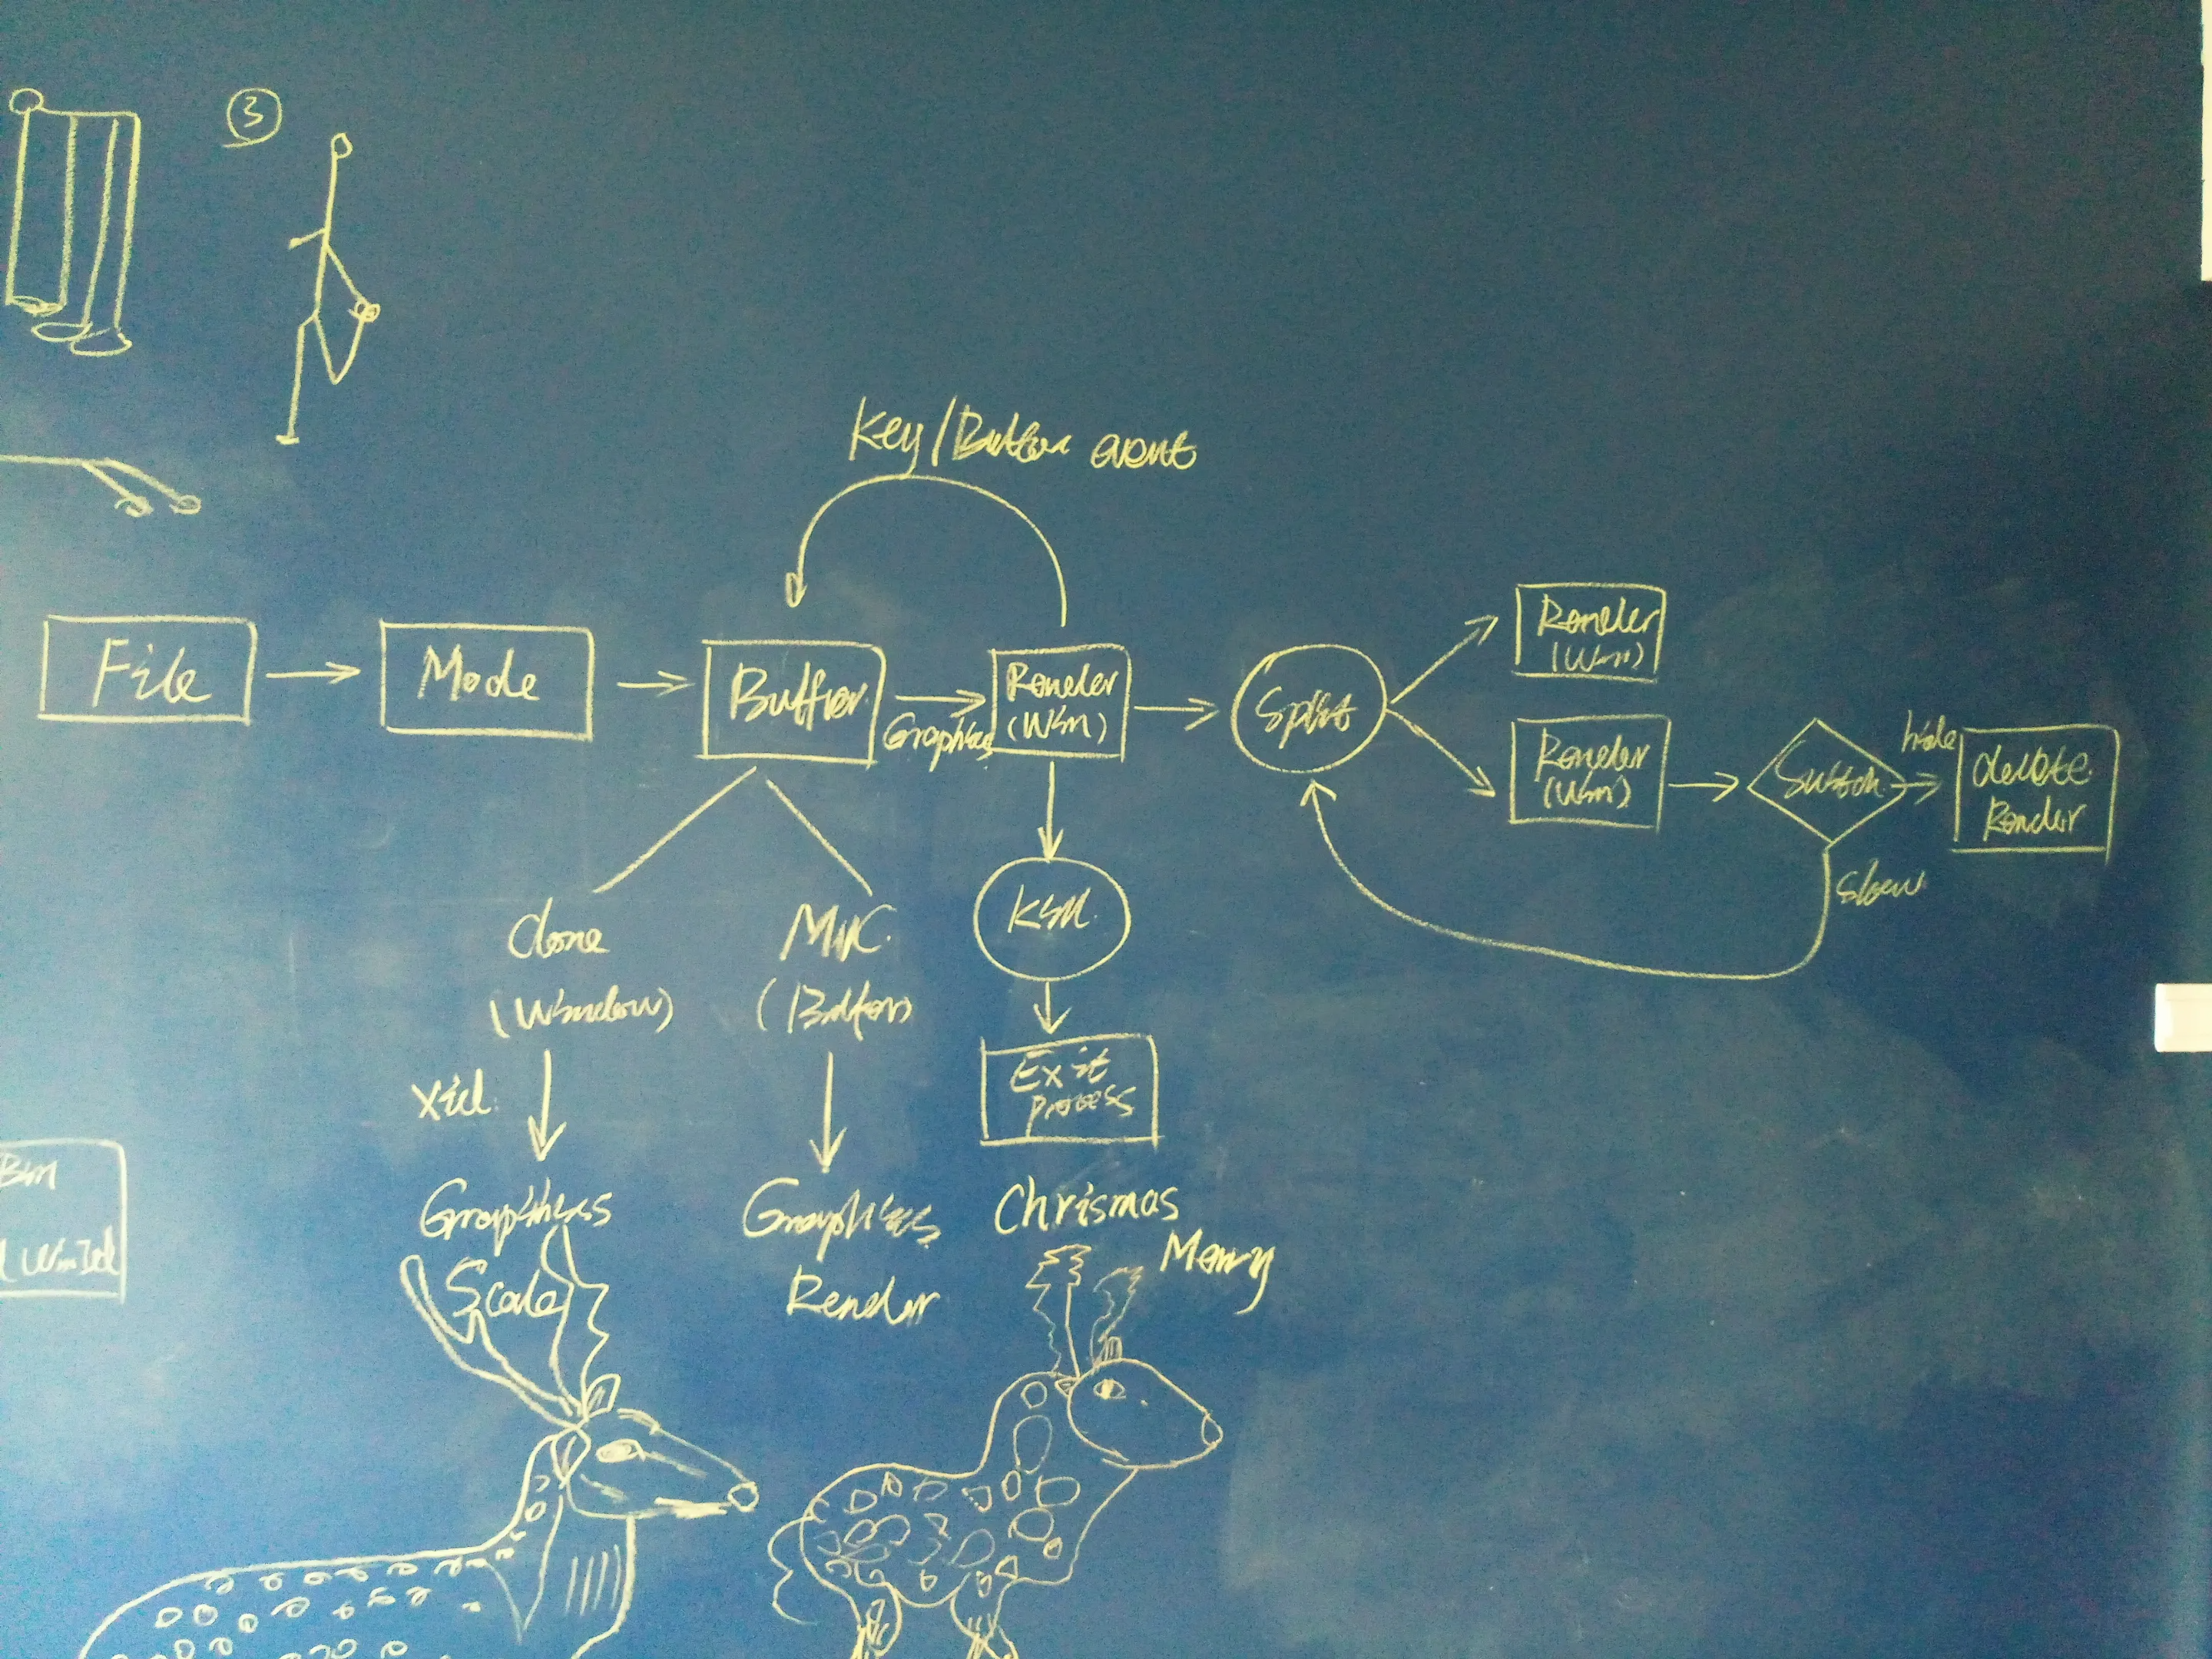 3
Key/Button event
File
Mode
Buffer
Graphics
Render
(Win)
Split
Render
(Win)
Render
(Win)
Switch
hide
delete
Render
show
clone
(Window)
MVC
(Button)
Kill
Xid
Exit
process
Graphics
Scale
Graphics
Render
Chrismas
Merry
WinId